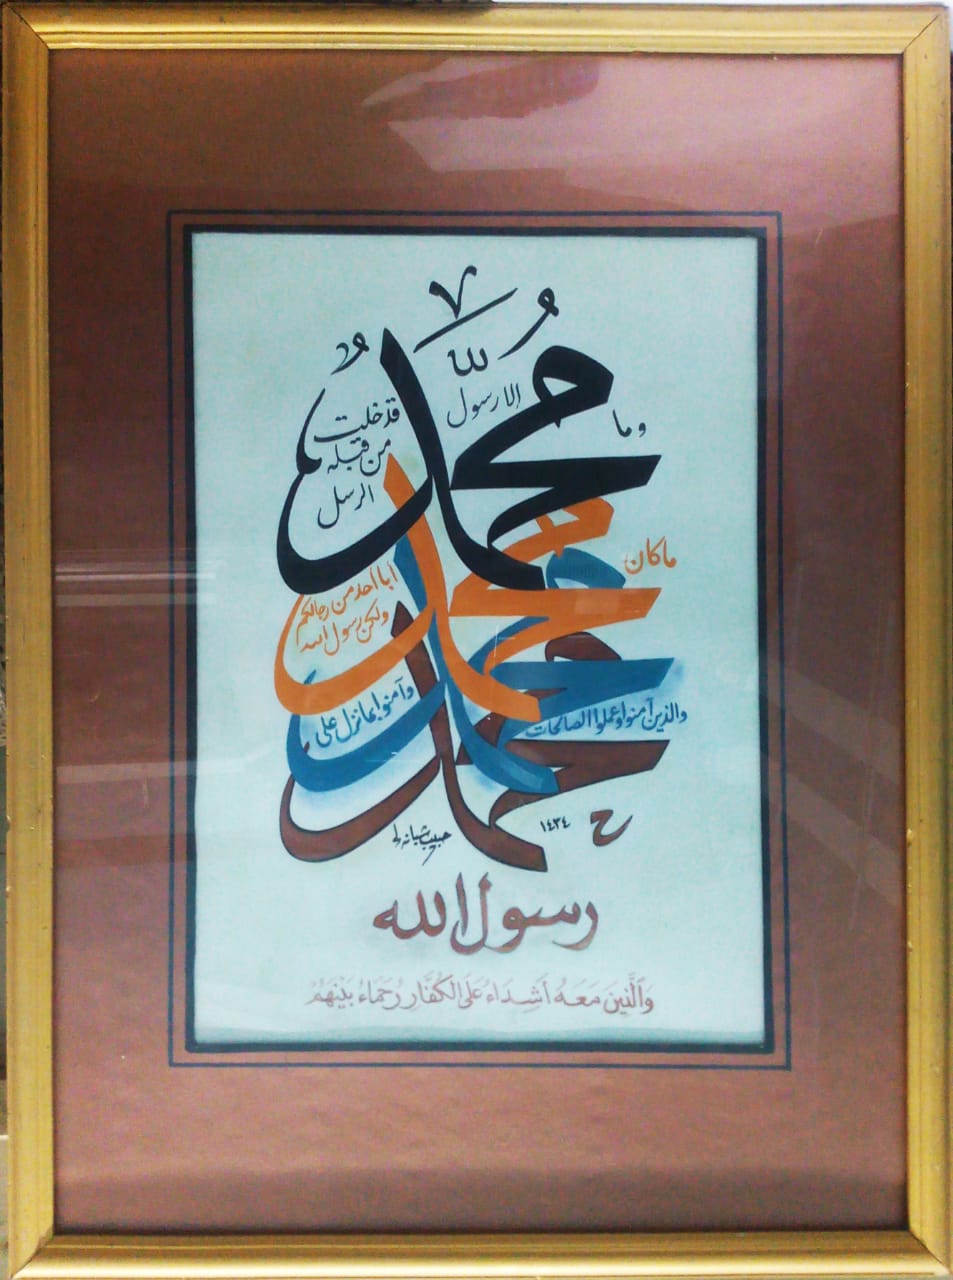 وما محمد الا رسول الله
قد خلت
من قبله
الرسل
ما كان محمد
أبا احد من رجالكم
ولكن رسول الله
والذين آمنوا وعملوا الصالحات
وآمنوا بما نزل على محمد
محمد
١٤٣٤
رسول الله
وَالَّذِينَ مَعَهُ أَشِدَاءُ عَلَى الكُفَّارِ رُحَمَاءُ بَيْنَهُمْ